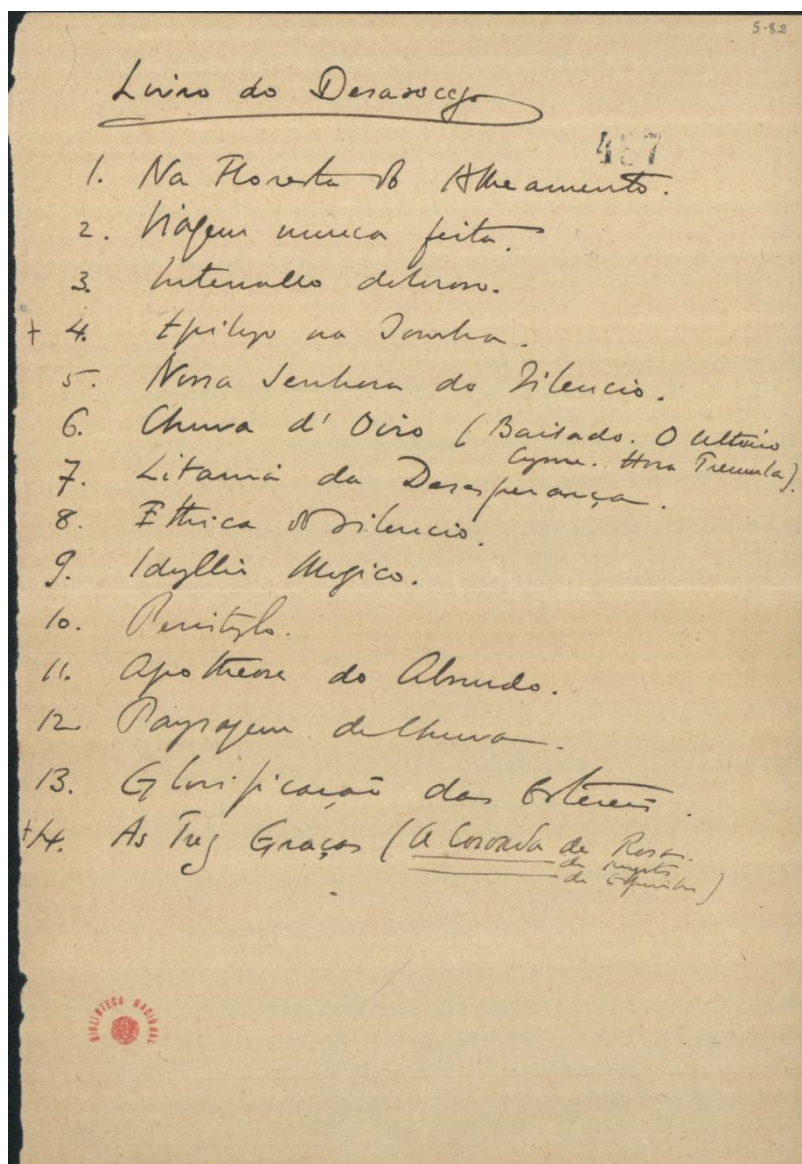 5-82
Livro do Desasocego
1. Na Floresta do Alheamento.
2. Viagem nunca feita.
3. Intervallo doloroso.
+ 4. Epilogo na Sombra.
5. Nossa Senhora do Silencio.
6. Chuva d'Oiro (Bailado. O Ultimo
Cysne. Hora Tremula).
7. Litania da Desesperança.
8. Ethica do Silencio.
9. Idyllio Magico.
10. Peristylo.
11. Apotheose do Absurdo.
12 Paysagem de Chuva.
13. Glorificação das Estereis.
+14. As Trez Graças (A Coroada de Rosas.
de Myrtos
de Espinhos)
BIBLIOTECA NACIONAL